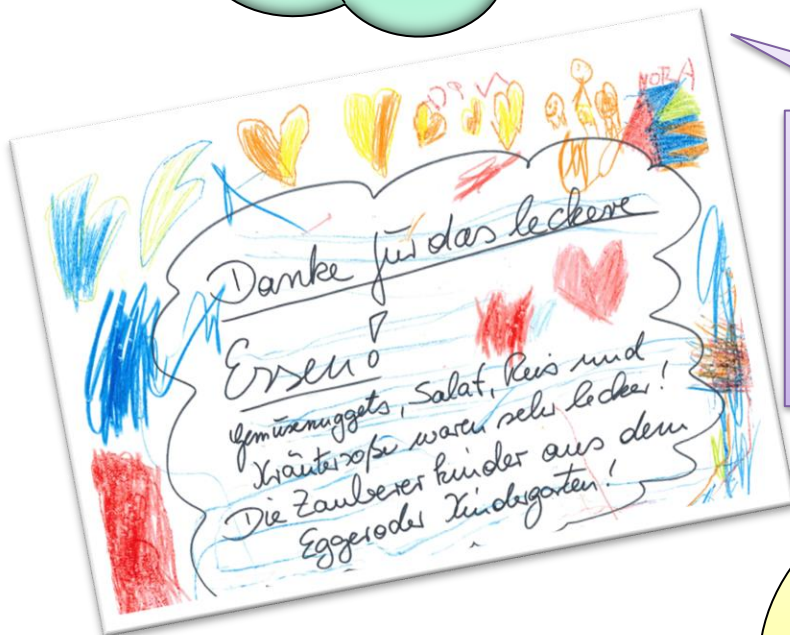 NORA
Danke für das leckere
Essen!
Gemüsenuggets, Salat, Reis und
Kräutersoße waren sehr lecker!
Die Zaubererkinder aus dem
Eggeroder Kindergarten!